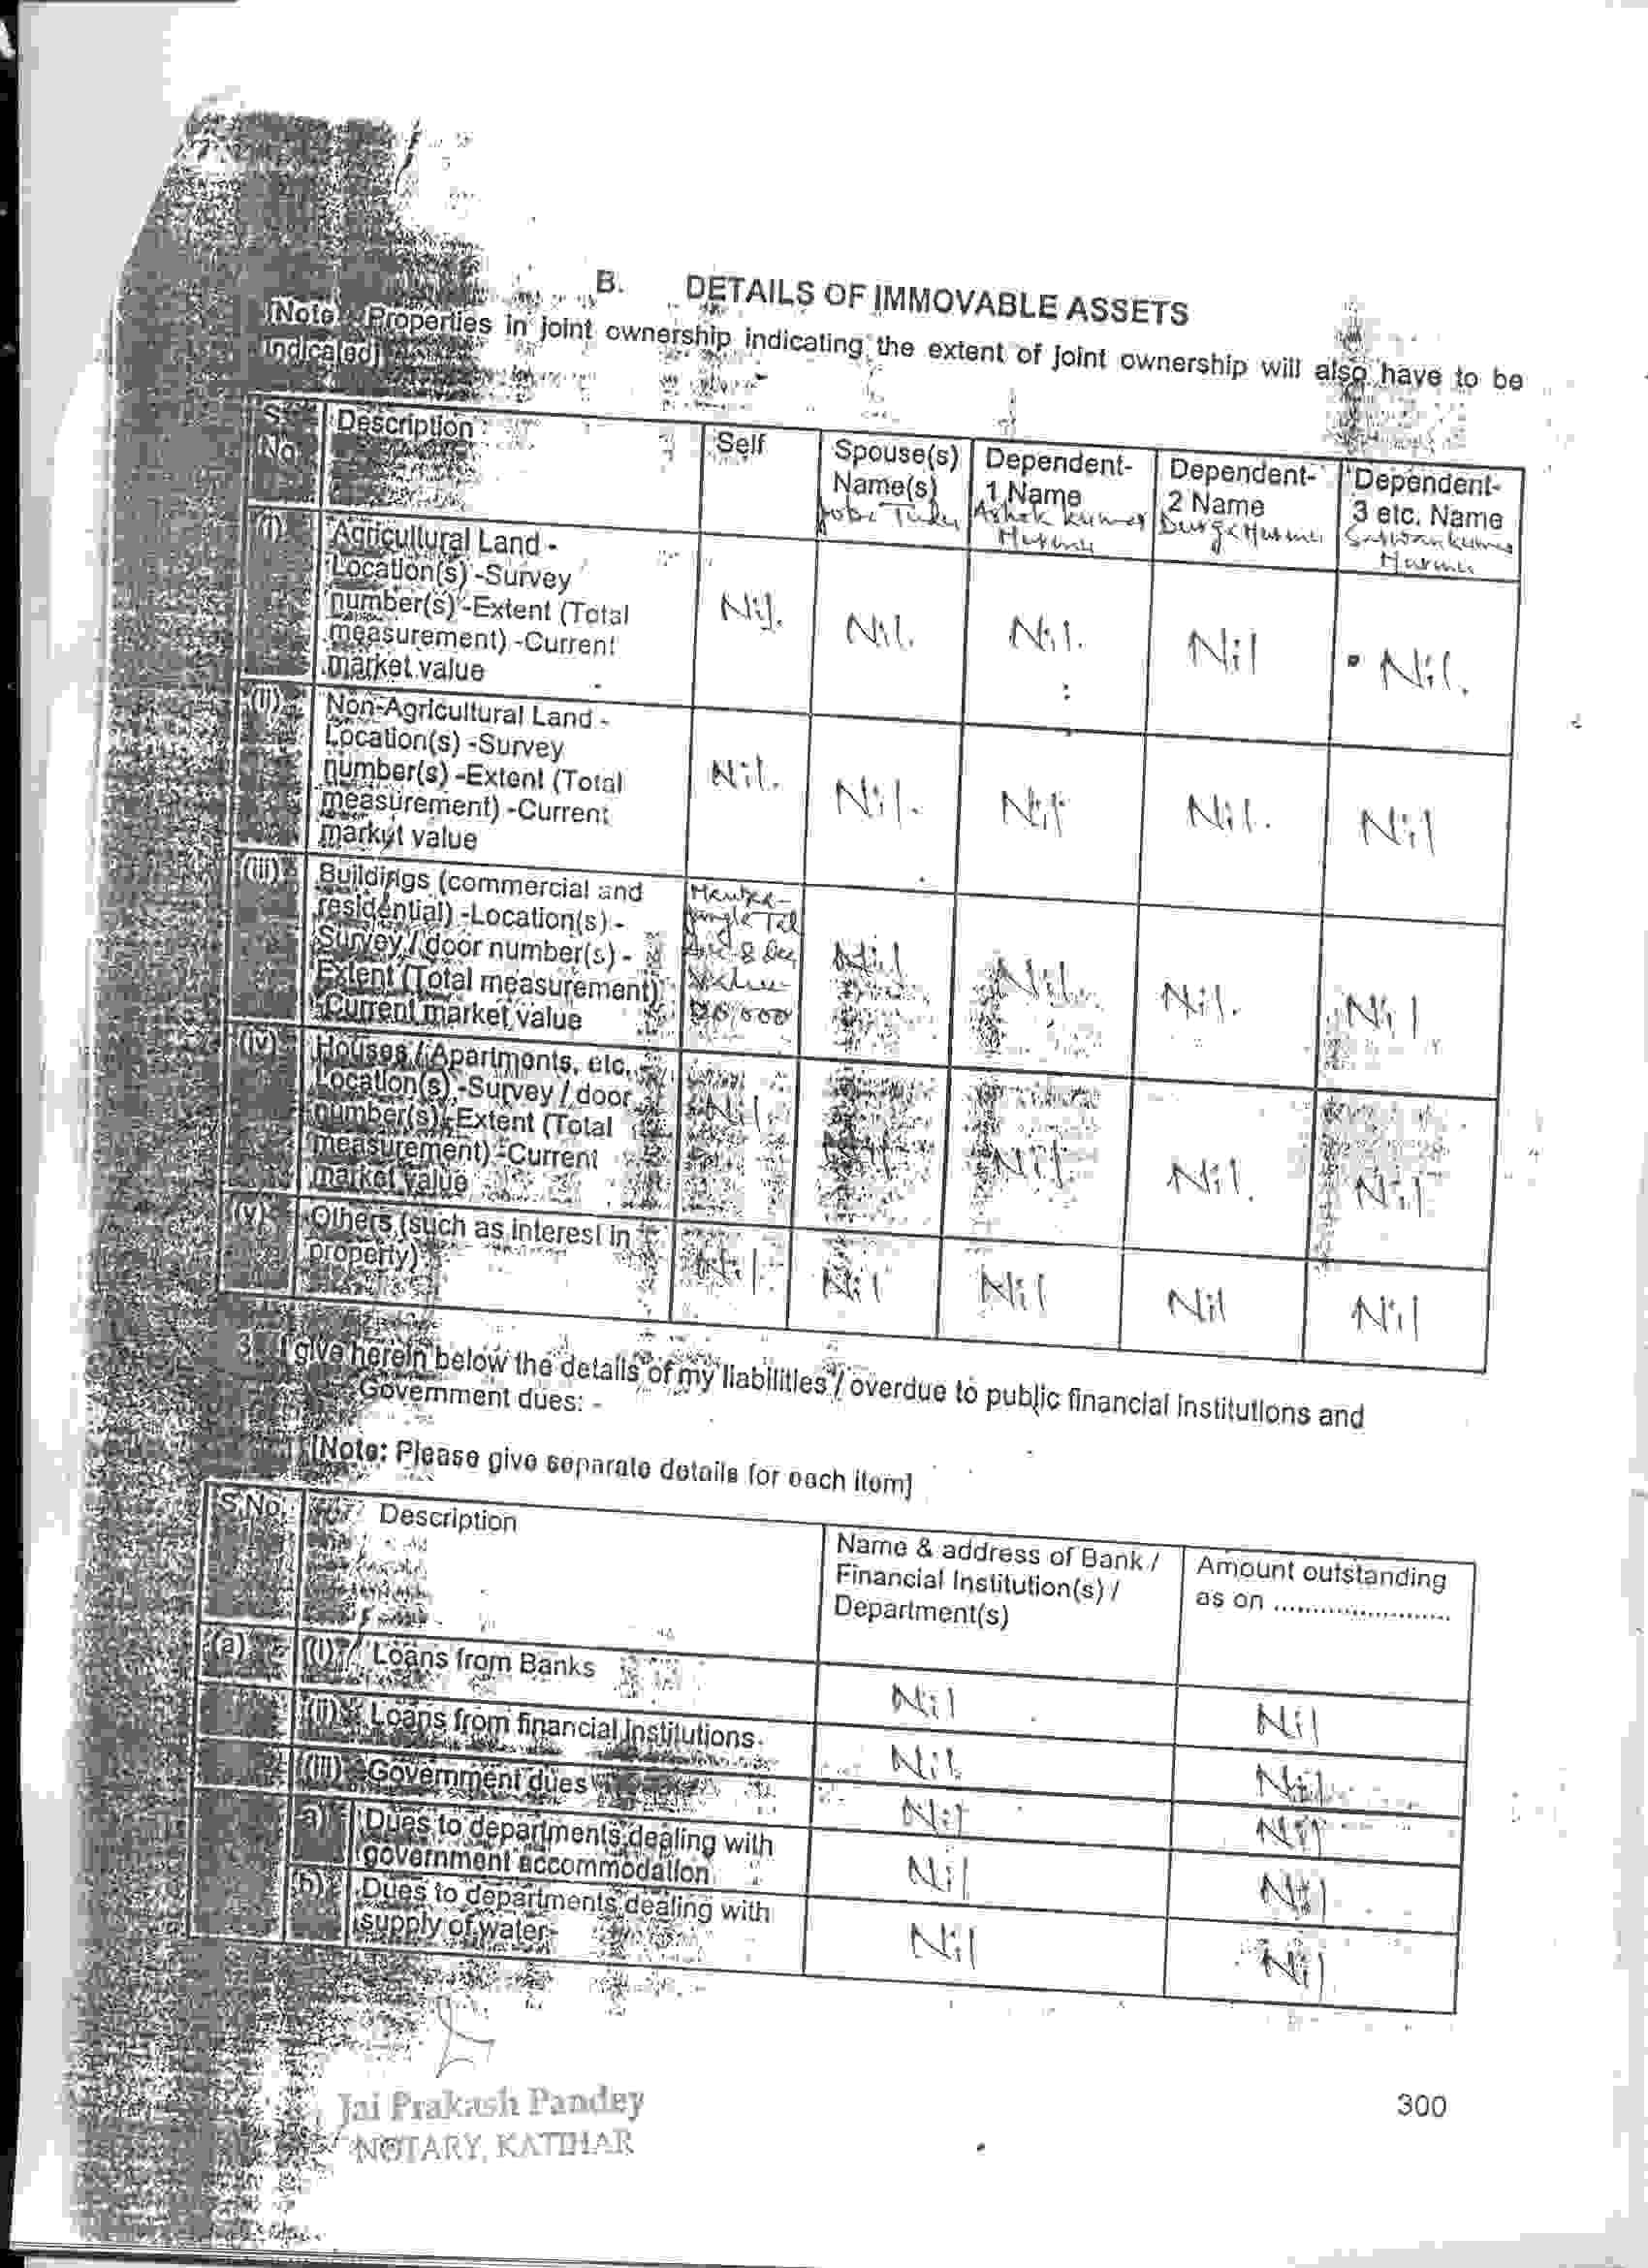 B. DETAILS OF IMMOVABLE ASSETS
[Note: Properties in joint ownership indicating the extent of joint ownership will also have to be
indicated]
S. No. Description Self Spouse(s) Name(s) Dependent-1 Name Ashok Kumar Murmu Dependent-2 Name Durga Murmu Dependent-3 etc. Name Kumar Murmu
(i) Agricultural Land -
Location(s) -Survey
number(s) -Extent (Total
measurement) -Current
market value
Nil. Nil. Nil. Nil Nil.
(ii) Non-Agricultural Land -
Location(s) -Survey
number(s) -Extent (Total
measurement) -Current
market value
Nil. Nil. Nil Nil. Nil
(iii) Buildings (commercial and
residential) -Location(s) -
Survey / door number(s) -
Extent (Total measurement)
Current market value
Value
Nil Nil. Nil. Nil
(iv) Houses / Apartments, etc.
Location(s) -Survey / door
number(s) -Extent (Total
measurement) -Current
market value
Nil Nil Nil. Nil
(v) Others (such as interest in
property)
Nil Nil Nil Nil Nil
I give herein below the details of my liabilities / overdue to public financial institutions and
Government dues: -
[Note: Please give separate details for each item]
S.No. Description Name & address of Bank / Financial Institution(s) / Department(s) Amount outstanding as on ........................
(a) (i) Loans from Banks Nil Nil
(ii) Loans from financial institutions Nil Nil
(iii) Government dues Nil Nil
a) Dues to departments dealing with
government accommodation Nil Nil
b) Dues to departments dealing with
supply of water Nil Nil
Jai Prakash Pandey
NOTARY, KATIHAR
300